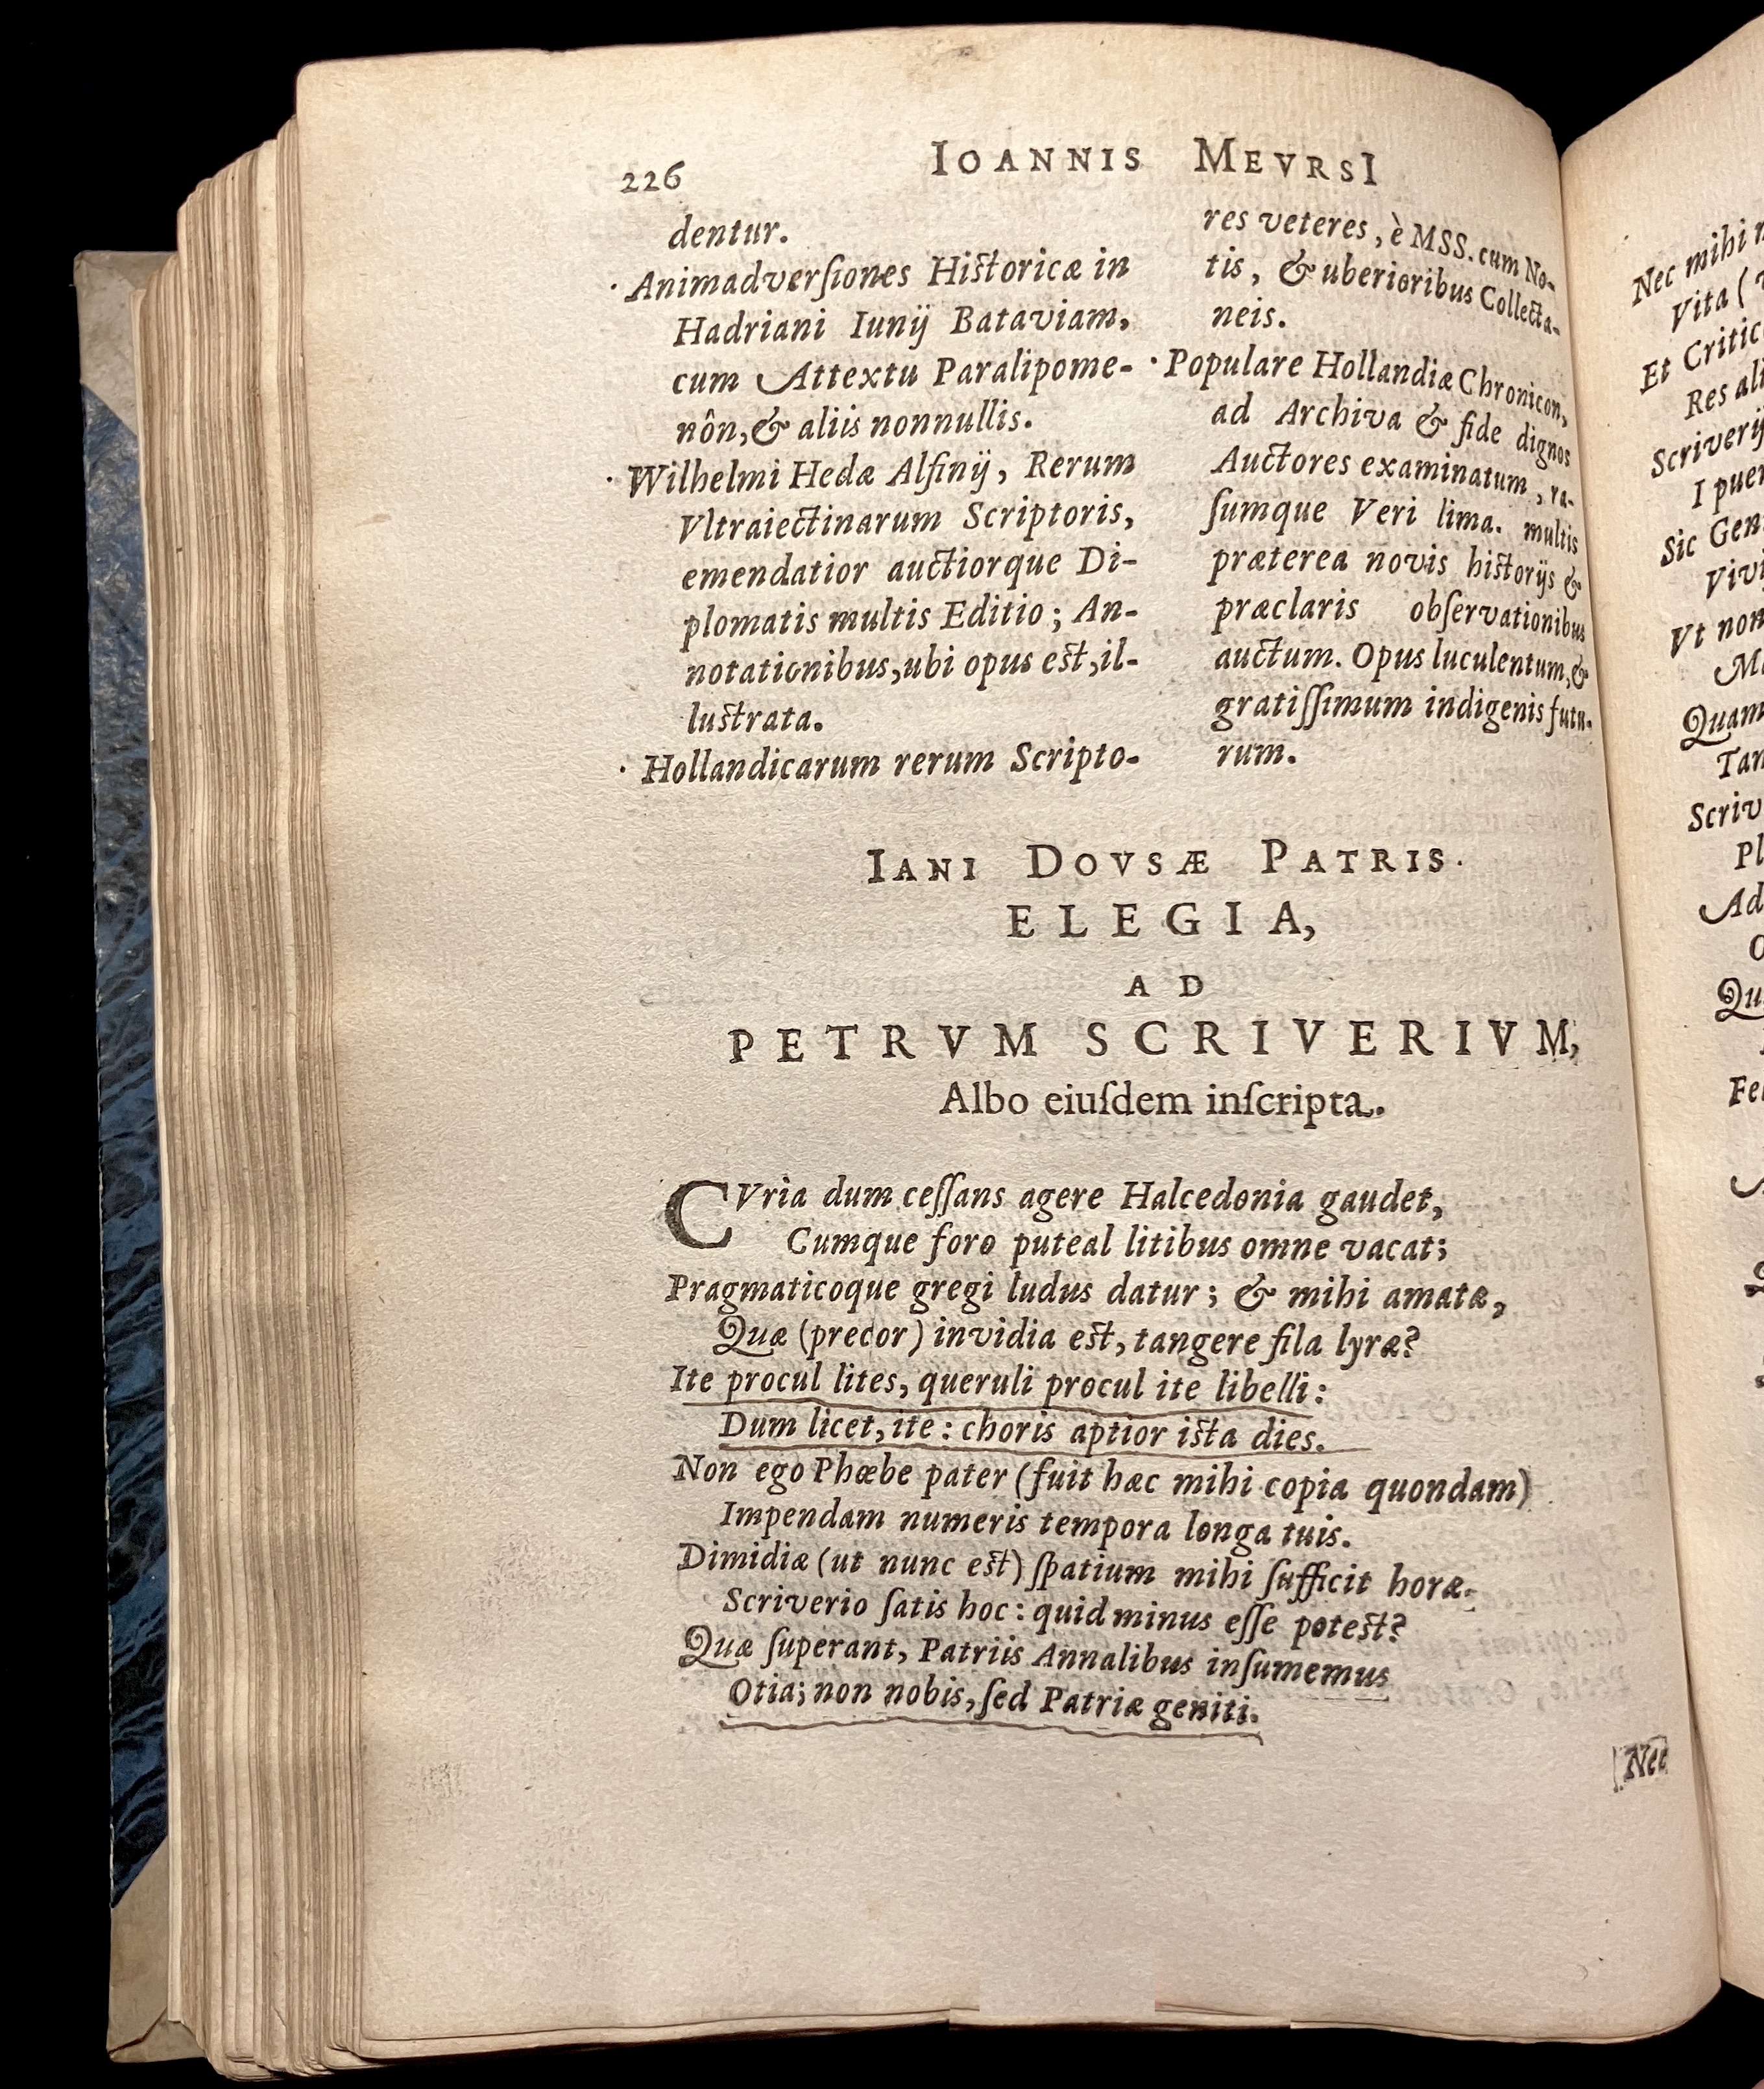 226
IOANNIS MEVRSI
dentur.
· Animadversiones Historicæ in
Hadriani Iunij Bataviam,
cum Attextu Paralipome-
nôn, & aliis nonnullis.
· Wilhelmi Hedæ Alfinij, Rerum
Vltraiectinarum Scriptoris,
emendatior auctiorque Di-
plomatis multis Editio; An-
notationibus, ubi opus est, il-
lustrata.
· Hollandicarum rerum Scripto-
res veteres, è MSS. cum No-
tis, & uberioribus Collecta-
neis.
· Populare Hollandiæ Chronicon,
ad Archiva & fide dignos
Auctores examinatum, ra-
sumque Veri lima. multis
præterea novis historijs &
præclaris observationibus
auctum. Opus luculentum, &
gratissimum indigenis futu-
rum.
IANI DOVSÆ PATRIS.
ELEGIA,
AD
PETRVM SCRIVERIVM,
Albo eiuſdem inſcripta.
CVria dum ceſſans agere Halcedonia gaudet,
Cumque foro puteal litibus omne vacat;
Pragmaticoque gregi ludus datur; & mihi amatæ,
Quæ (precor) invidia est, tangere fila lyræ?
Ite procul lites, queruli procul ite libelli:
Dum licet, ite: choris aptior ista dies.
Non ego Phœbe pater (fuit hæc mihi copia quondam)
Impendam numeris tempora longa tuis.
Dimidiæ (ut nunc est) ſpatium mihi ſufficit horæ.
Scriverio ſatis hoc: quid minus eſſe potest?
Quæ ſuperant, Patriis Annalibus inſumemus
Otia; non nobis, ſed Patriæ geniti.
Nec
Nec mihi
Vita (
Et Critic
Res ali
Scriverij
I puer
Sic Gen
Vivi
Vt non
Quam
Tan
Scriv
Pl
Ad
Qu
Fe